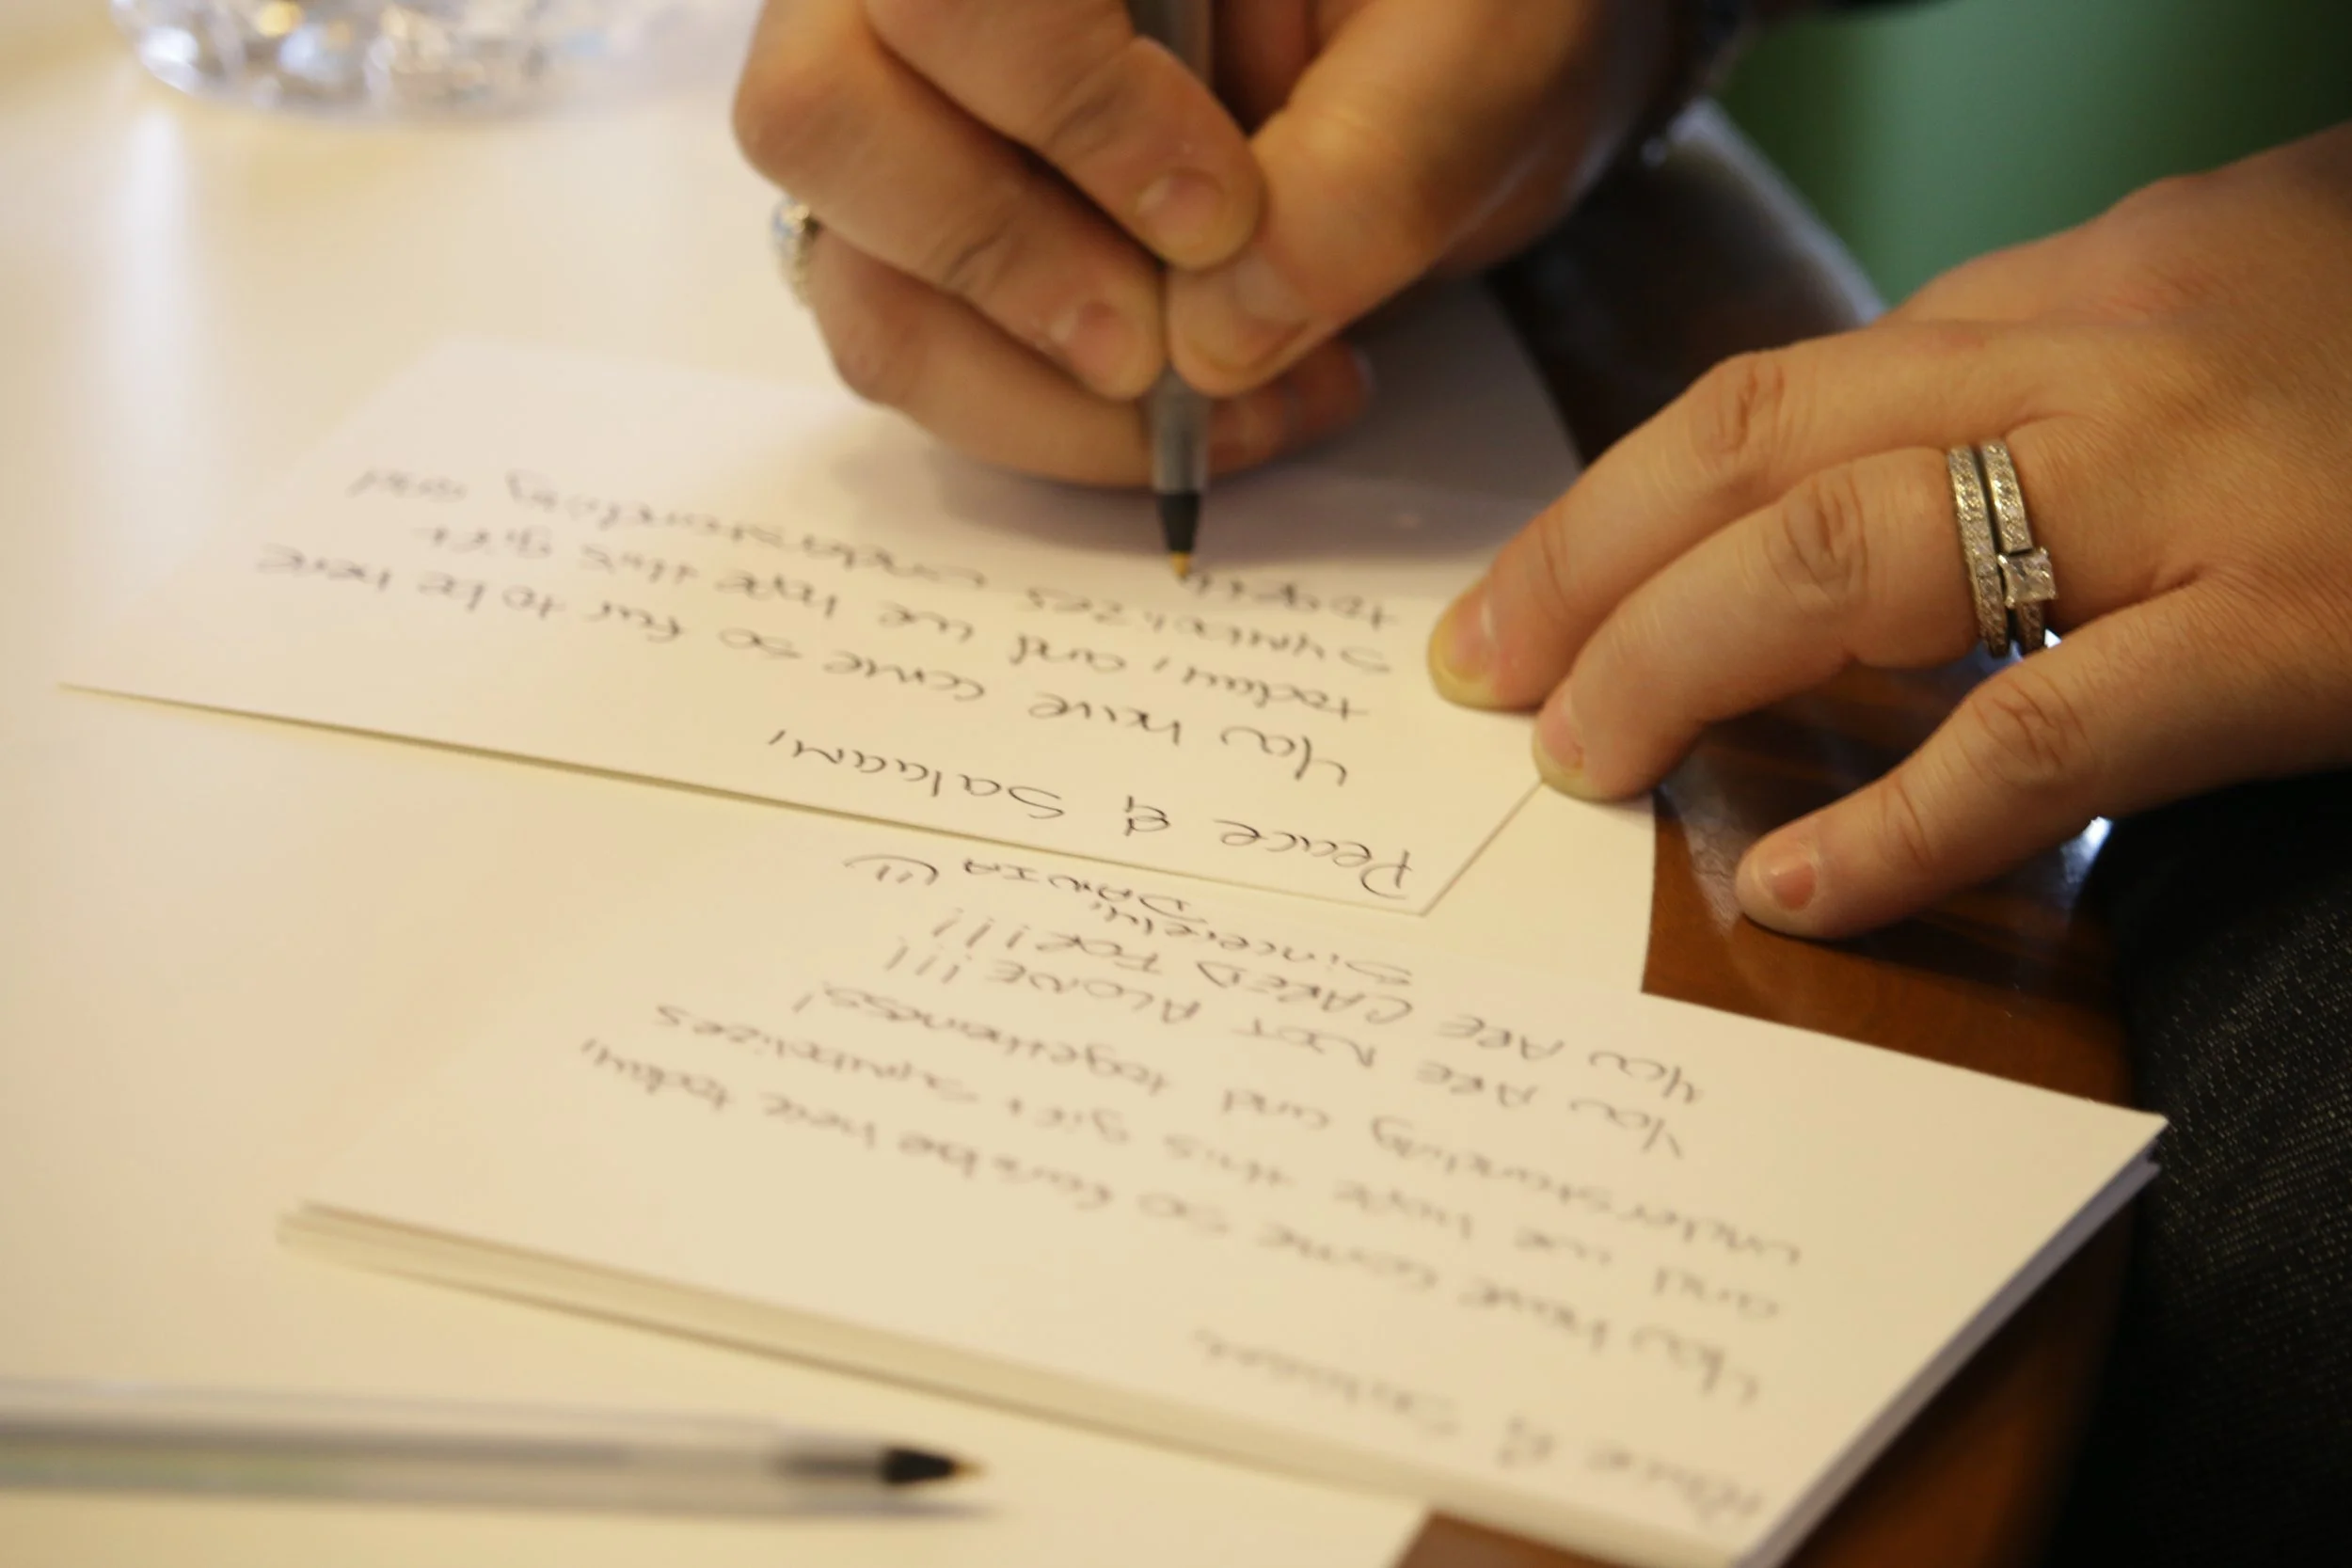 Peace & Salaam,
You have come so far to be here
today, and we hope this gift
symbolizes understanding and
togeth
Peace & Salaam,
You have come so far to be here today,
and we hope this gift symbolizes
understanding and togetherness!
You ARE NOT ALONE!!!
You ARE CARED FOR!!!
Sincerely,
DANIA